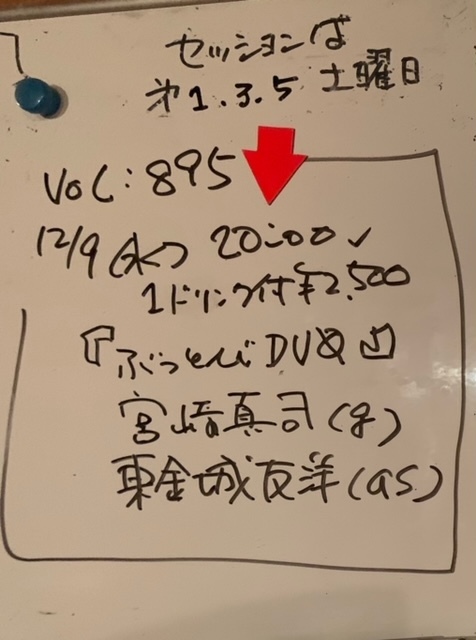 セッションは
第1.3.5 土曜日
VOL:895
12/9(水) 20:00〜
1ドリンク付¥2,500
『ぶっとびDUO』
宮崎真司(g)
東金城友洋(as)